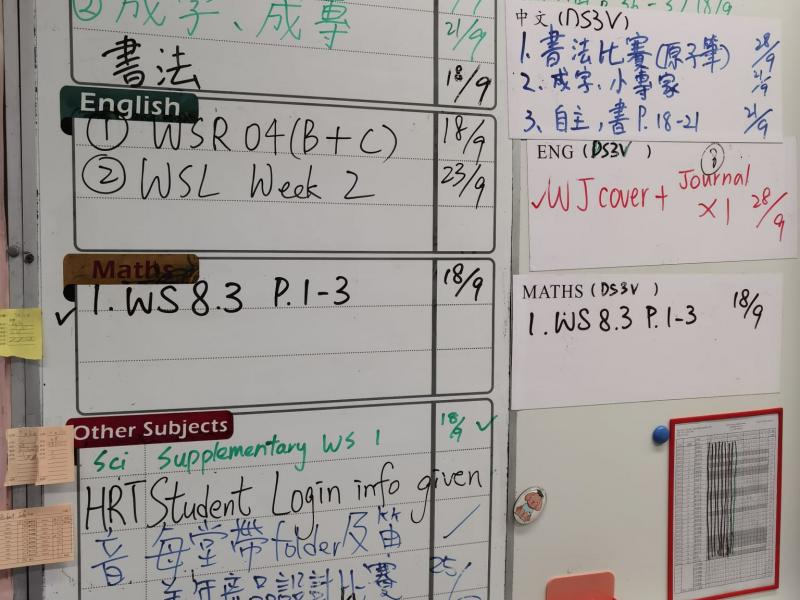 ② 成字、成專 21/9
書法 18/9
English
① WSR 04(B+C) 18/9
② WSL Week 2 23/9
Maths
✓ 1. WS 8.3 P.1-3 18/9
Other Subjects
Sci Supplementary WS 1 18/9 ✓
HRT Student Login info given
音 每堂帶folder及笛 /
中文 (DS3V)
1. 書法比賽(原子筆) 28/9
2. 成字、小專家 21/9
3. 自主,書 P.18-21 21/9
ENG (DS3V)
✓ WJ cover + Journal x1 28/9
MATHS (DS3V)
1. WS 8.3 P.1-3 18/9